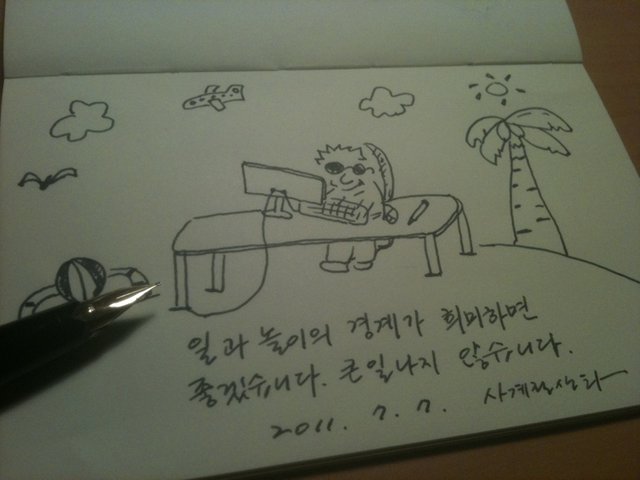 일과 놀이의 경계가 희미하면
좋겠습니다. 큰일나지 않습니다.
2011. 7. 7. 사계절산타